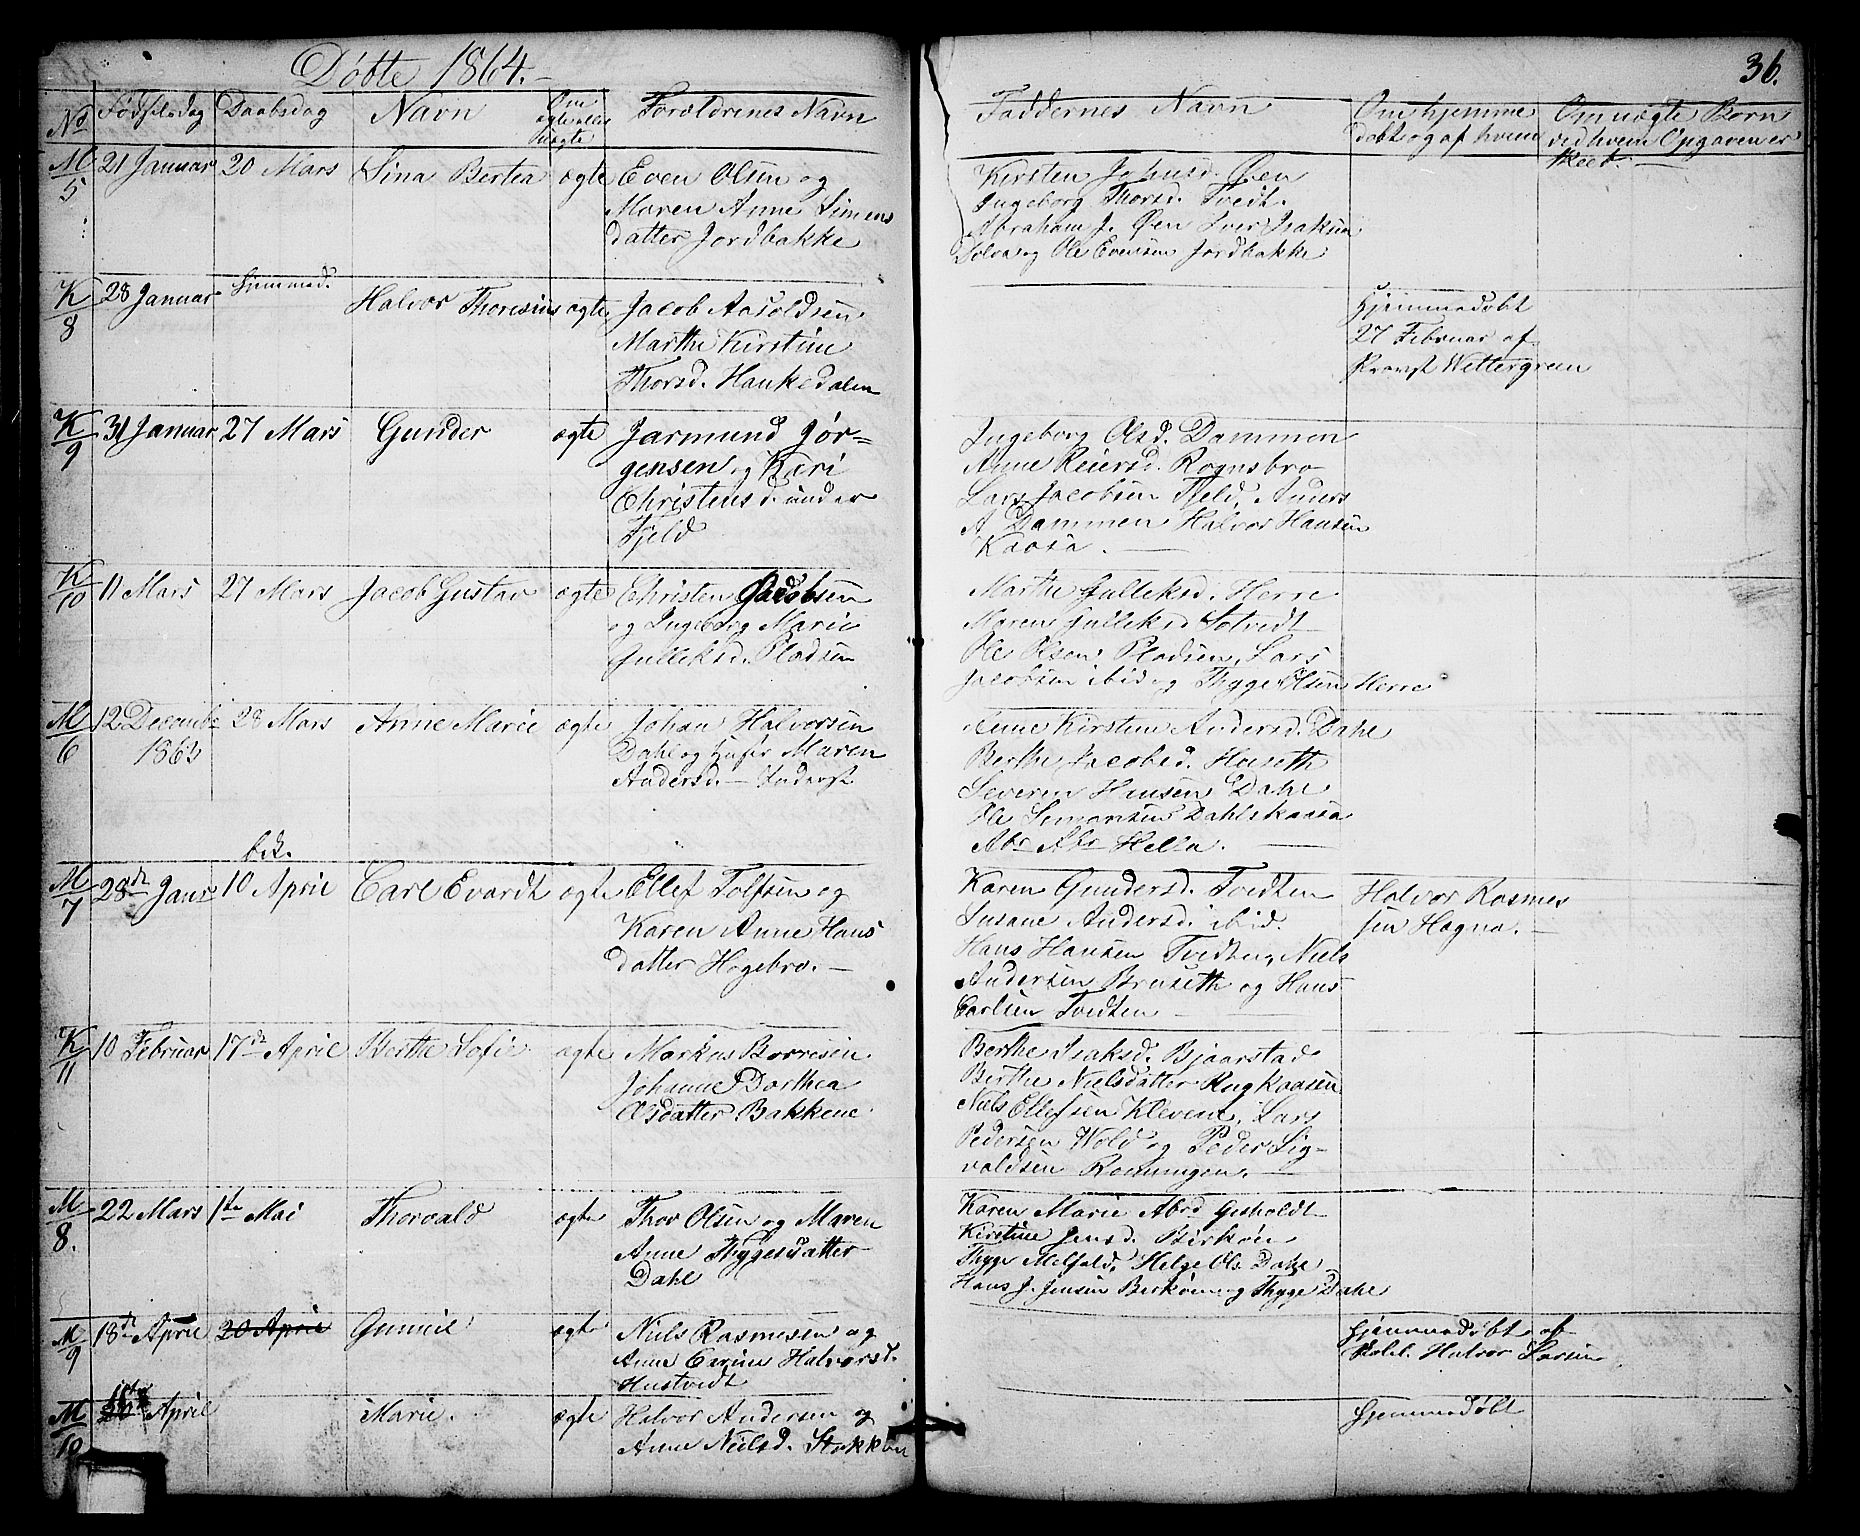 Døbte 1864.
36.
No Fødselsdag Daabsdag Navn Om ægte eller uægte Forældrenes Navn Faddernes Navn Om hjemme døbt og af hvem Om uægte Børn ved hvem Opgaven er skeet.
M 5 21 Januar 20 Mars Sina Bertea ægte Even Olsen og
Maren Anne Simens
datter Jordbakke
Kirsten Johnsd. Øen
Ingeborg Thorsd. Tvedt.
Abraham J. Øen Iver Isaksen
Solva og Ole Evensen Jordbakke
K 8 28 Januar hjemmed. Halvor Thoresius ægte Jacob Aasoldsen
Marthe Kirstine
Thorsd. Haukedalen
Hjemmedøbt
27 Februar af
Provst Wettergreen
K 9 31 Januar 27 Mars Gunder ægte Jarmund Jør-
gensen og Kari
Christensd. under
Fjeld
Ingeborg Olsd. Dammen
Anne Reiersd. Rognsbro
Lars Jacobsen Fjeld, Anders
A Dammen Halvor Hansen
Kaasa. —
K 10 11 Mars 27 Mars Jacob Gustav ægte Christen Jacobsen
og Ingeborg Marie
Gulleksd. Pladsen
Marthe Gulleksd. Herre
Maren Gulleksd Solvedt
Ole Olsen Pladsen, Lars
Jacobsen ibid og Thyge Olsen Herre
M 6 12 Decembe 1863 28 Mars Anne Marie ægte Johan Halvorsen
Dahl og Maren
Andersd. —
Anne Kirstine Andersd. Dahl
Berthe Jacobsd. Haseth
Severin Hansen Dahl
Ole Simonsen Dahlskaasa
Abr Abr Hella. —
M 7 28de Janr bek. 10 April Carl Evardt ægte Ellef Tolfsen og
Karen Anne Hans
datter Hogebro. —
Karen Gundersd. Tvedten
Susane Andersd. ibid.
Hans Hansen Tvedten, Niels
Andersen Bruseth og Hans
Carlsen Tvedten —
Halvor Rasmes
sen Hogna. —
K 11 10 Februar 17de April Berthe Sofie ægte Markus Borresen
Johanne Dorthea
Olsdatter Bakkene
Berthe Isaksd. Bjaarstad
Berthe Nielsdatter Rugkaasen
Niels Ellefsen Klevene, Lars
Pedersen Wold og Peder Sig-
valdsen Romningen. —
M 8. 22 Mars 1te Mai Thorvald ægte Thor Olsen og Maren
Anne Thygesdatter
Dahl
Karen Marie Abrd Gisholdt
Kirstine Jensd. Birkøen
Thyge Melfald, Helge Ols. Dahl
Hans J. Jensen Birkøen og Thyge Dahl
M 9 18de April 20 April Gunnil ægte Niels Rasmesen og
Anne Carine Halvorsd.
Hustvedt
Hjemmedøbt af
Halvor Larsen
M 10 April Marie. ægte Halvor Andersen og
Anne Nielsd. Stokken
Hjemmedøbt